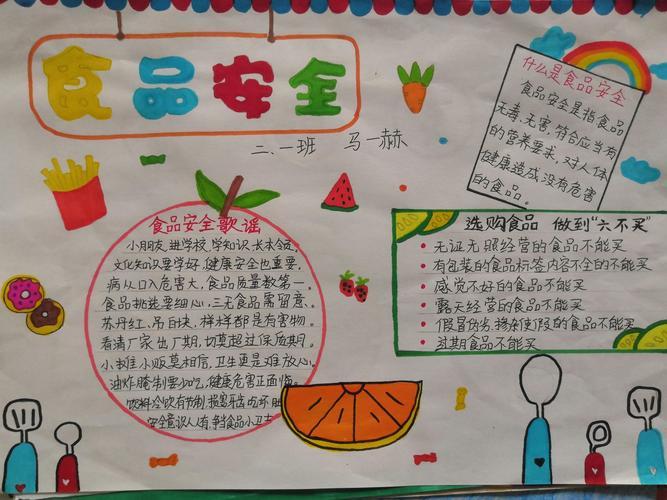 食品安全
二.一班 马一赫
什么是食品安全
食品安全是指食品
无毒、无害,符合应当有
的营养要求,对人体
健康造成没有危害
的食品。
食品安全歌谣
小朋友,进学校,学知识,长本领,
文化知识要学好,健康安全也重要,
病从口入危害大,食品质量数第一。
食品挑选要细心,三无食品需留意、
苏丹红、吊白块,样样都是有害物。
看清厂家出厂期,切莫超过保质期。
小摊小贩莫相信,卫生更是难放心。
油炸腌制要少吃,健康危害正面临。
饮料冷饮有节制,损害牙齿
安全意识人人有,争当食品小卫士
选购食品 做到“六不买”
无证无照经营的食品不能买
有包装的食品标签内容不全的不能买
感觉不好的食品不能买
露天经营的食品不能买
假冒伪劣、掺杂使假的食品不能买
过期食品不能买